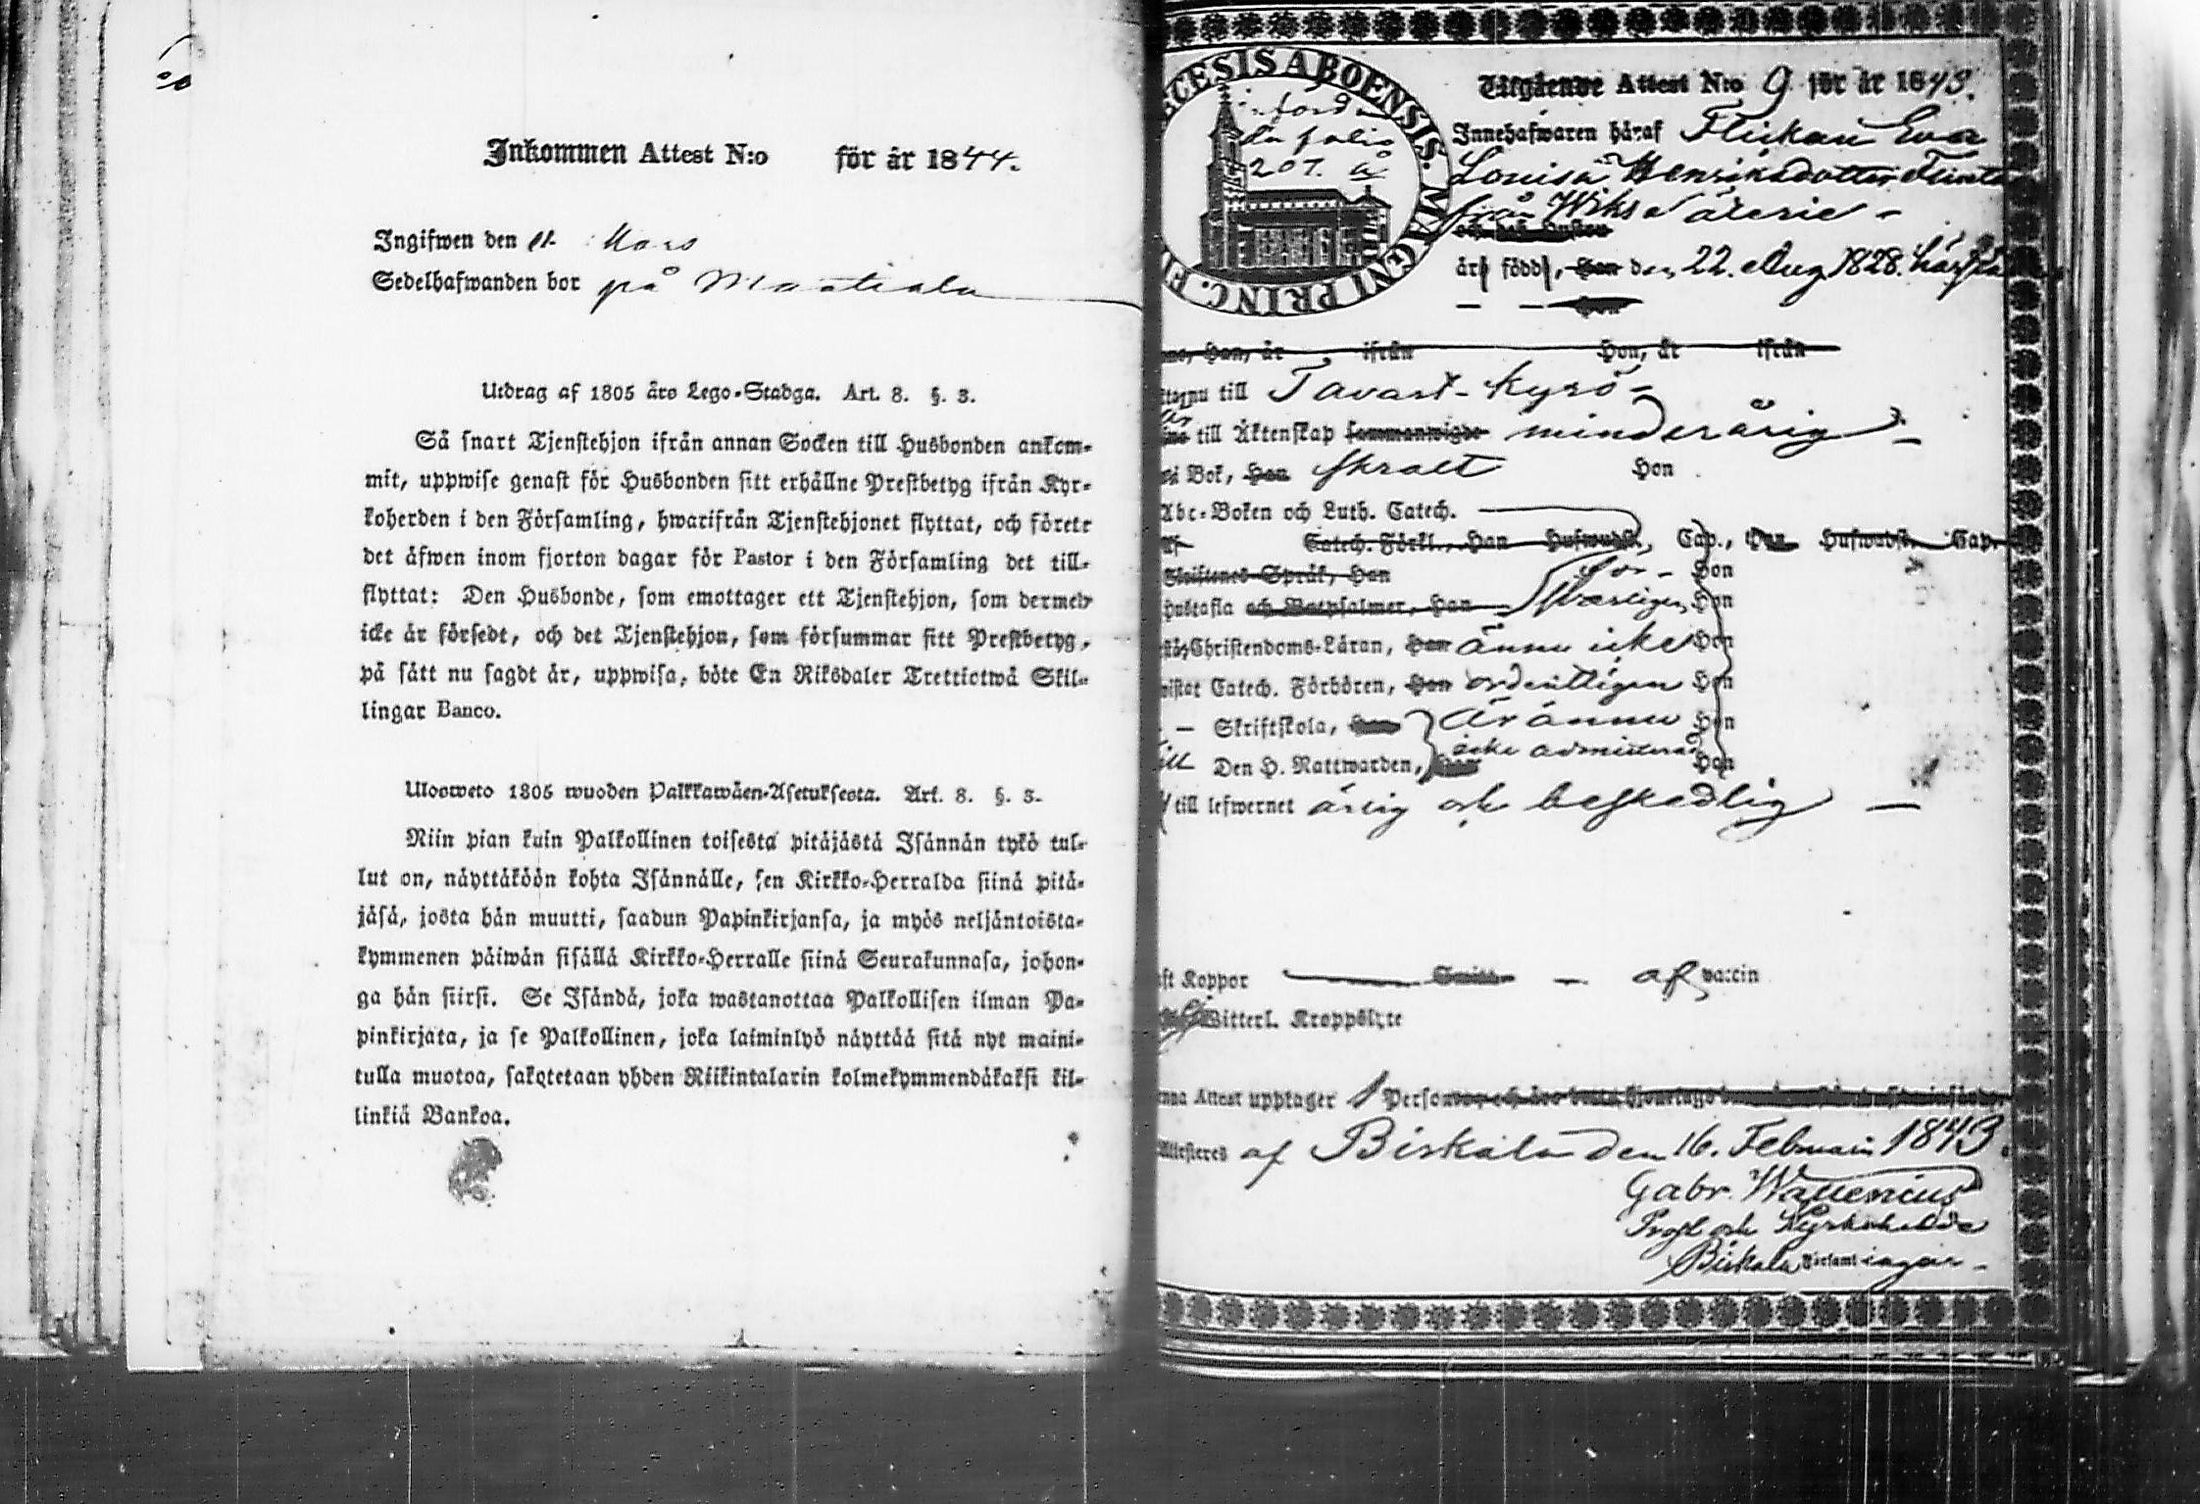 Inkommen Attest N:o för år 1844.
Ingifwen den 11. Mars
Sedelhafwanden bor på
Utdrag af 1805 års Lego-Stadga. Art. 8. §. 3.
Så snart Tjenstehjon ifrån annan Socken till Husbonden ankom-
mit, uppwise genast för Husbonden sitt erhållne Prestbetyg ifrån Kyr-
koherden i den Församling, hwarifrån Tjenstehjonet flyttat, och förete
det äfwen inom fjorton dagar för Pastor i den Församling det till-
flyttat: Den Husbonde, som emottager ett Tjenstehjon, som dermed
icke är försedt, och det Tjenstehjon, som försummar sitt Prestbetyg,
på sätt nu sagdt är, uppwisa, böte En Riksdaler Trettiotwå Skil-
lingar Banco.
Ulosweto 1805 wuoden Palkkawäen-Asetuksesta. Art. 8. §. 3.
Niin pian kuin Palkollinen toisesta pitäjästä Isännän tykö tul-
lut on, näyttäköön kohta Isännälle, sen Kirkko-Herralda siinä pitä-
jäsä, josta hän muutti, saadun Papinkirjansa, ja myös neljäntoista-
kymmenen päiwän sisällä Kirkko-Herralle siinä Seurakunnasa, johon-
ga hän siirsi. Se Isändä, joka wastanottaa Palkollisen ilman Pa-
pinkirjata, ja se Palkollinen, joka laiminlyö näyttää sitä nyt maini-
tulla muotoa, sakotetaan yhden Riikintalarin kolmekymmendäkaksi kil-
linkiä Bankoa.
ECESIS ABOENSIS. MAGNI PRINC. F
folio
207.
Utgående Attest N:o 9 för år 1843.
Innehafwaren häraf Flickan Eva
Lovisa Henriksdotter
från Wiks Säterie -
och des Hustru
är född, Han den 22. Aug 1828. här
Hon
Han, är ifrån Hon, är ifrån
till Tavast-Kyrö -
till Äktenskap sammanwigde minderårig -
i Bok, Han skralt Hon
Abc-Boken och Luth. Catech.
Catech. Förkl., Han Hufwudst., Cap., Hon Hufwudst. Cap.
Skriftenes Språk, Han Hon
Hustafla och Botpsalmer, Han Hon
Christendoms-Läran, Han ännu icke Hon
wistat Catech. Förhören, Han ordentligen Hon
— Skriftskola, Han är ännu Hon
icke admitterad
till Den H. Nattwarden, Han Hon
till lefwernet ärlig och beskedlig —
Koppor Smitt — af vaccin
Witterl. Kroppslyte
Attest upptager 1 Person
Attesteres af Birkala den 16. Februari 1843.
Gabr. Wallenius
Prost och Kyrkoherde
Birkala Församlingar -